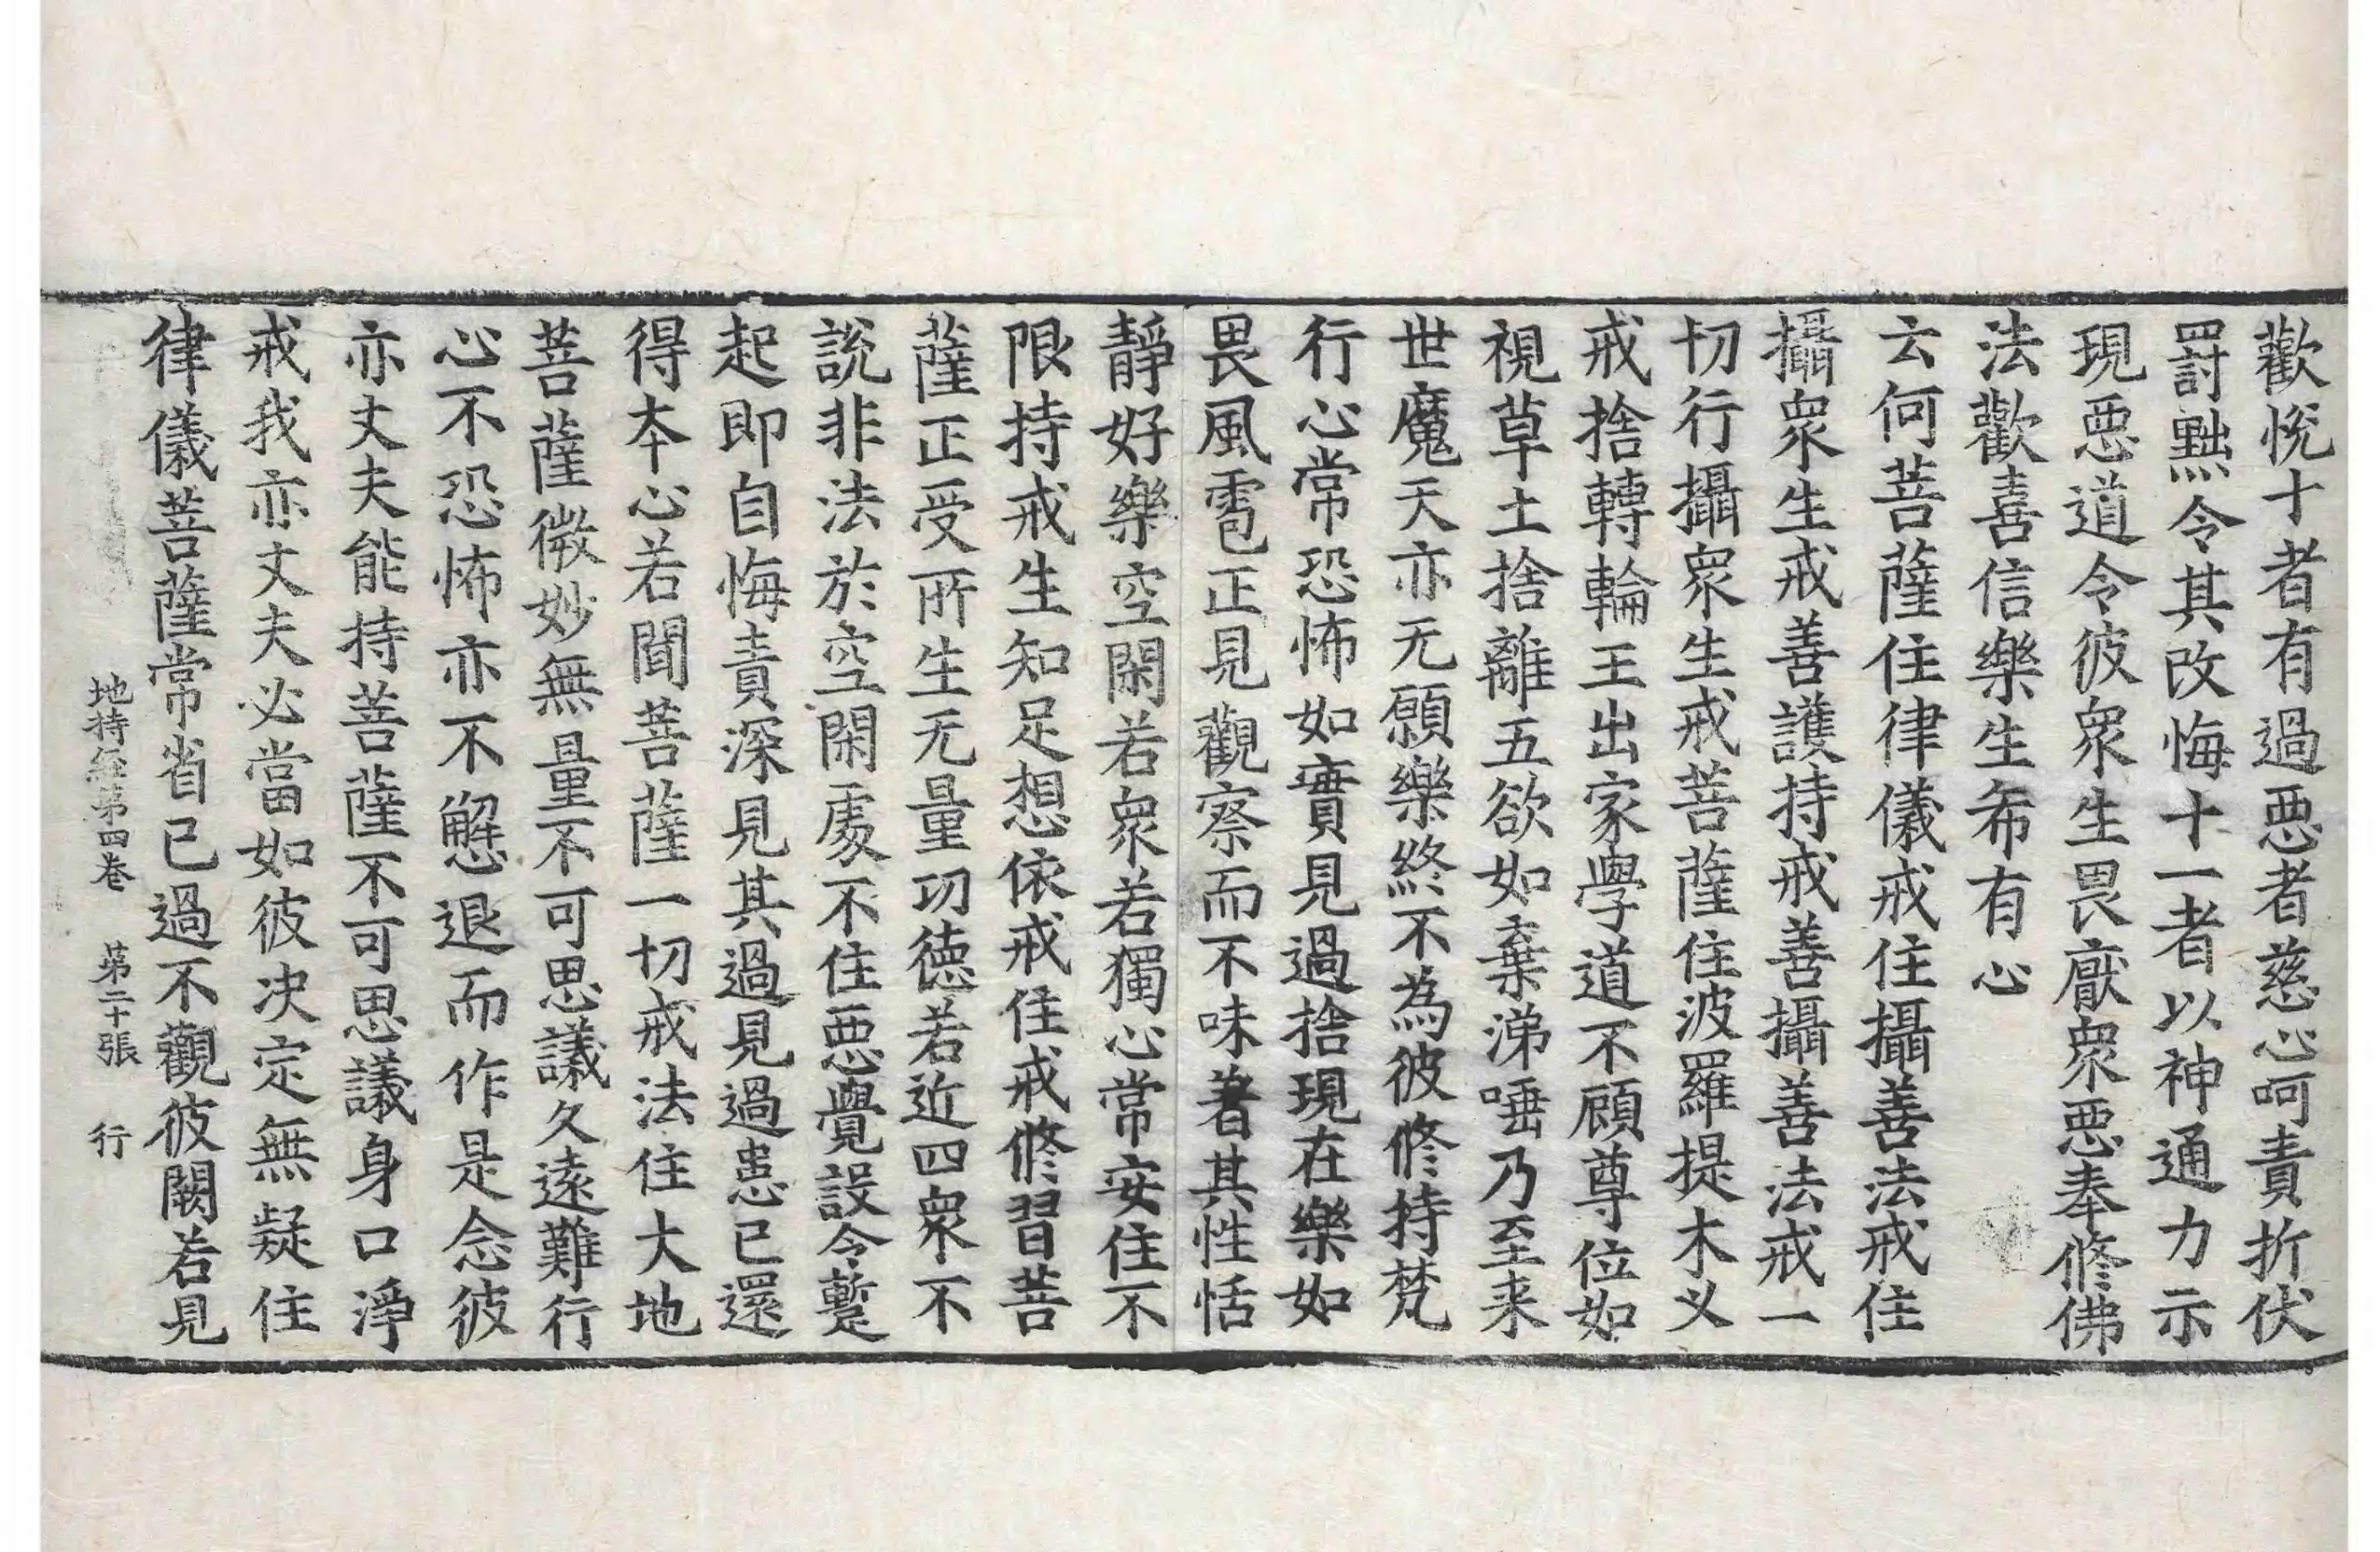 歡悅十者有過惡者慈心呵責折伏
罰黜令其改悔十一者以神通力示
現惡道令彼衆生畏厭衆惡奉修佛
法歡喜信樂生希有心
云何菩薩住律儀戒住攝善法戒住
攝衆生戒善護持戒善攝善法戒一
切行攝衆生戒菩薩住波羅提木义
戒捨轉輪王出家學道不顧尊位如
視草土捨離五欲如棄涕唾乃至来
世魔天亦无願樂終不為彼修持梵
行心常恐怖如實見過捨現在樂如
畏風雹正見觀察而不味著其性恬
靜好樂空閑若衆若獨心常安住不
限持戒生知足想依戒住戒修習菩
薩正受所生无量功德若近四衆不
說非法於空閑處不住惡覺設令蹔
起即自悔責深見其過見過患已還
得本心若聞菩薩一切戒法住大地
菩薩微妙無量不可思議久遠難行
心不恐怖亦不懈退而作是念彼
亦丈夫能持菩薩不可思議身口淨
戒我亦丈夫必當如彼决定無疑住
律儀菩薩常省已過不觀彼闕若見
地持經第四卷 第二十張 行